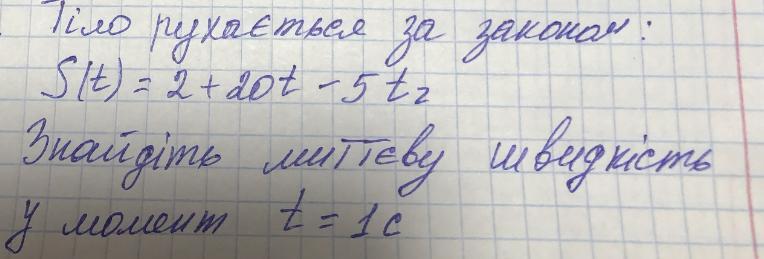 Тіло рухається за законом:
S(t) = 2 + 20t - 5t₂
Знайдіть миттєву швидкість
у момент t = 1с